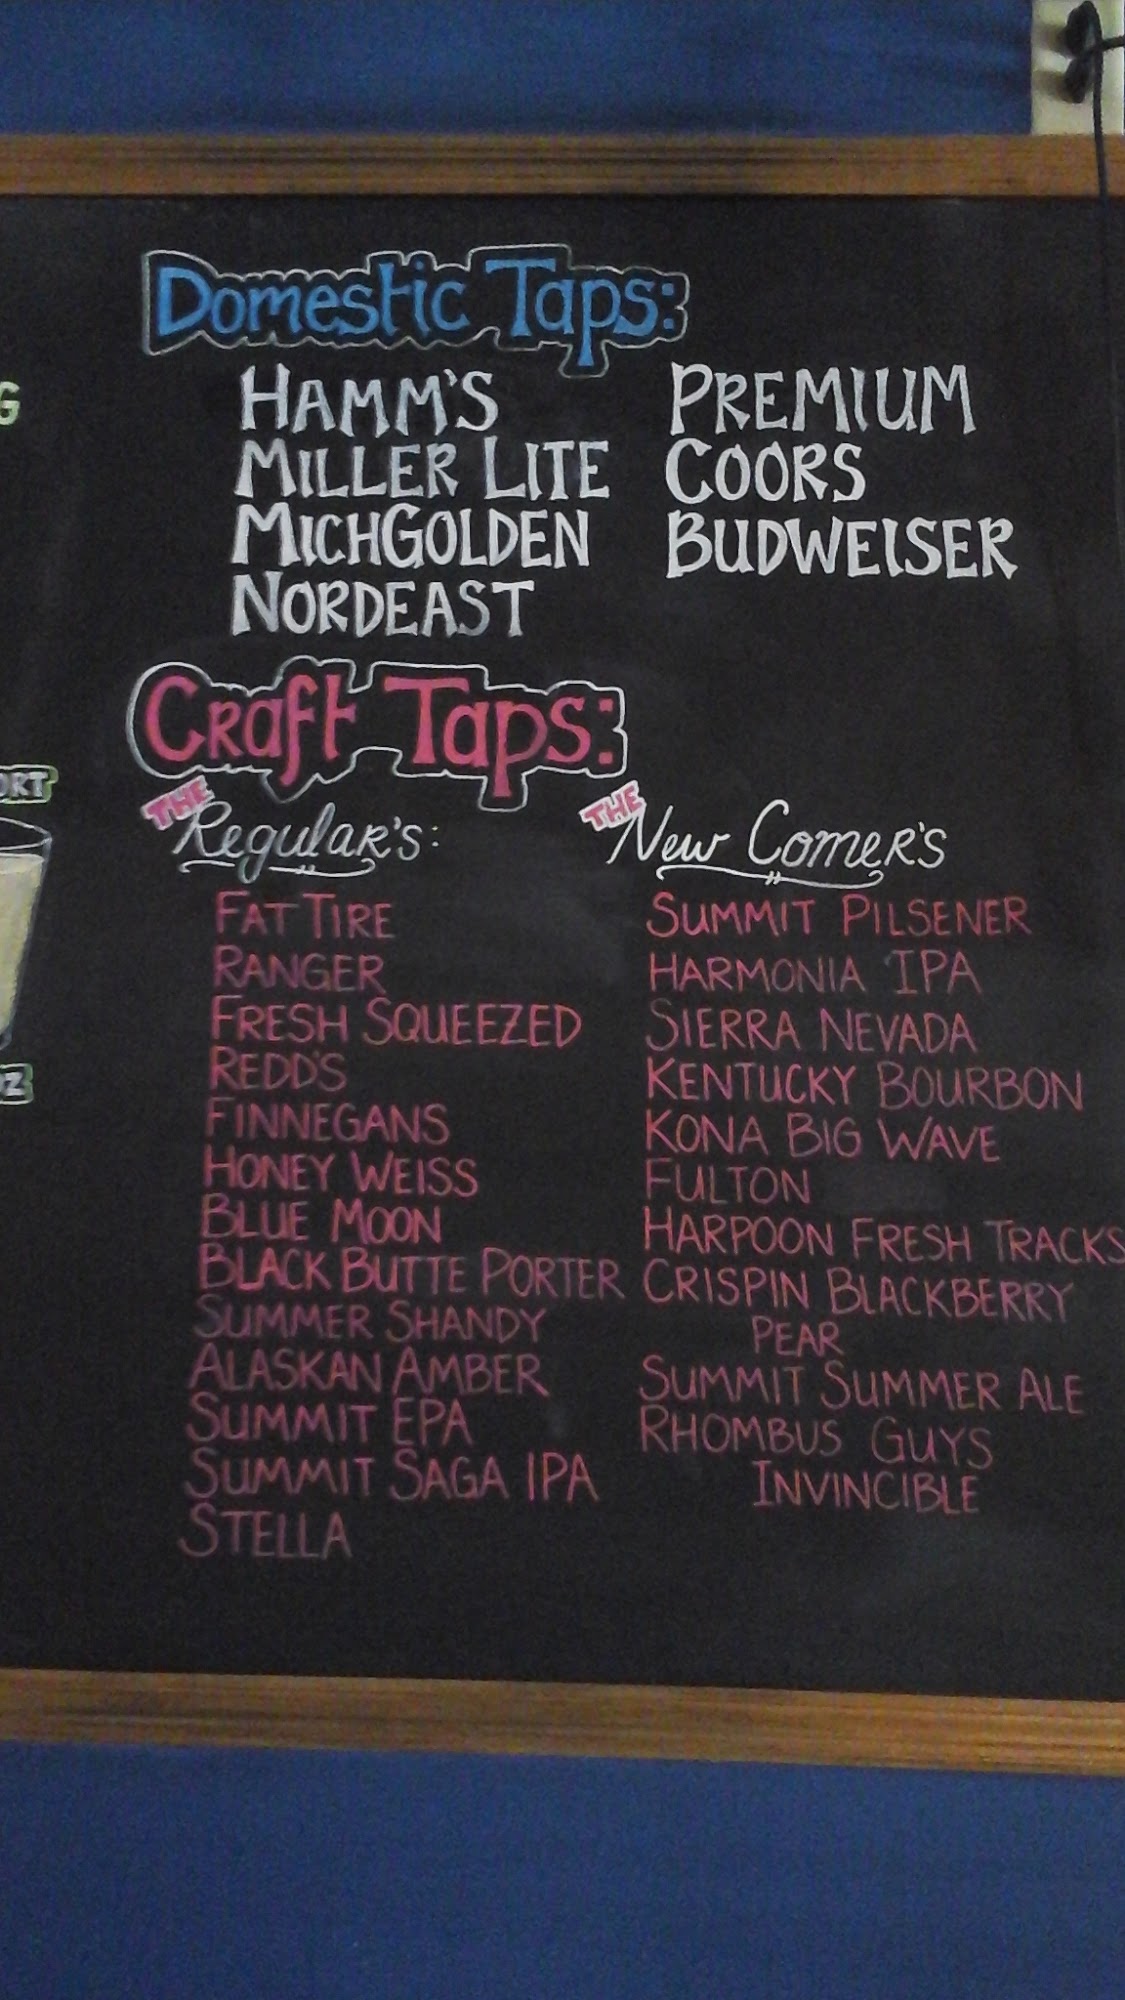 Domestic Taps:
HAMM'S
MILLER LITE
MICHGOLDEN
NORDEAST
PREMIUM
COORS
BUDWEISER
Craft Taps:
THE Regular's:
FAT TIRE
RANGER
FRESH SQUEEZED
REDD'S
FINNEGANS
HONEY WEISS
BLUE MOON
BLACK BUTTE PORTER
SUMMER SHANDY
ALASKAN AMBER
SUMMIT EPA
SUMMIT SAGA IPA
STELLA
THE New Comer's
SUMMIT PILSENER
HARMONIA IPA
SIERRA NEVADA
KENTUCKY BOURBON
KONA BIG WAVE
FULTON
HARPOON FRESH TRACKS
CRISPIN BLACKBERRY
PEAR
SUMMIT SUMMER ALE
RHOMBUS GUYS
INVINCIBLE